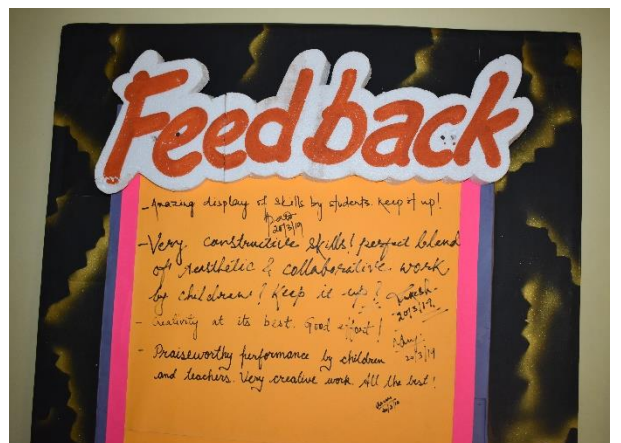 Feedback
- Amazing display of skills by students. Keep it up!
20/3/19
- Very constructive skills! perfect blend
of Aesthetic & collaborative work
by children! Keep it up!
20/3/19
- Creativity at its best. Good effort!
20/3/19
- Praiseworthy performance by children
and teachers. Very creative work. All the best!